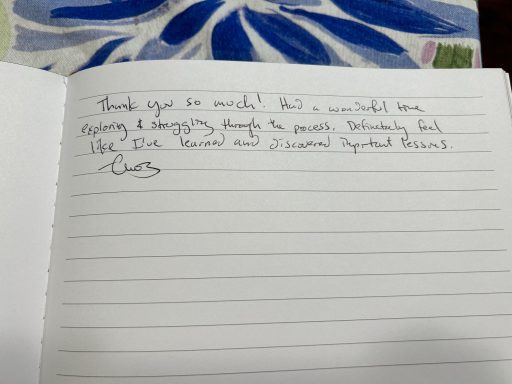 Thank you so much! Had a wonderful time
exploring & struggling through the process. Definately feel
like I've learned and discovered important lessons.